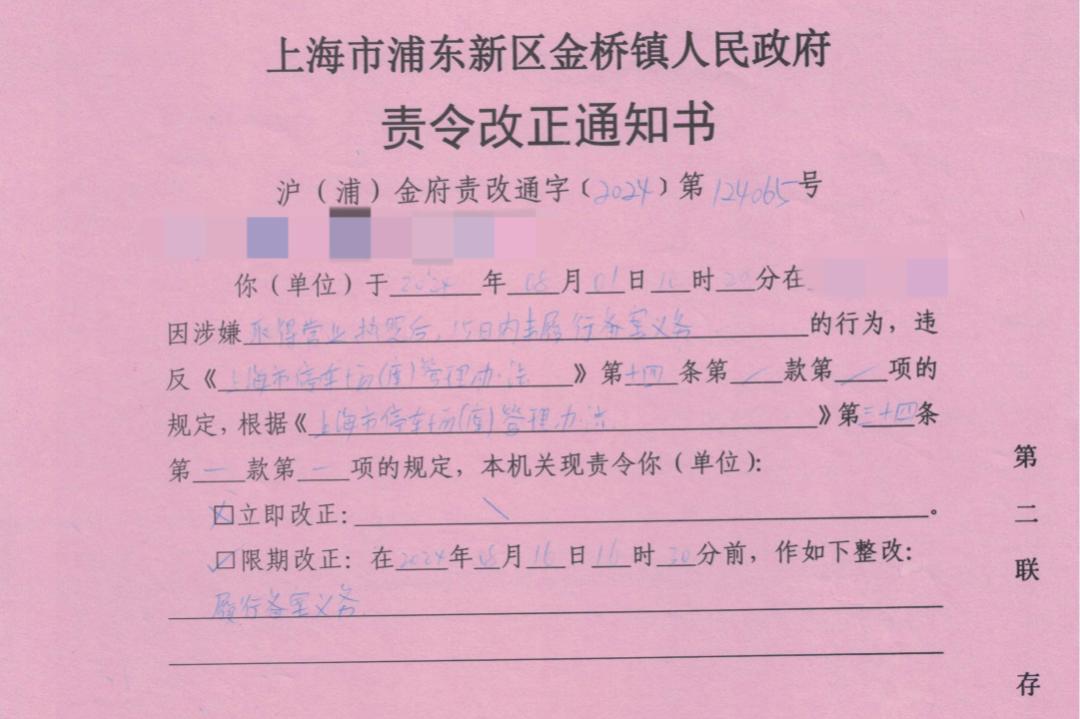 上海市浦东新区金桥镇人民政府
责令改正通知书
沪（浦）金府责改通字〔2024〕第124065号
你（单位）于2024年08月01日 时 分在
因涉嫌取得营业执照后，15日内未履行备案义务的行为，违
反《上海市停车场(库)管理办法》第十四条第／款第／项的
规定，根据《上海市停车场(库)管理办法》第三十四条
第一款第一项的规定，本机关现责令你（单位）：
☒立即改正：＼。
☑限期改正：在2024年08月16日16时30分前，作如下整改：
履行备案义务
第二联
存